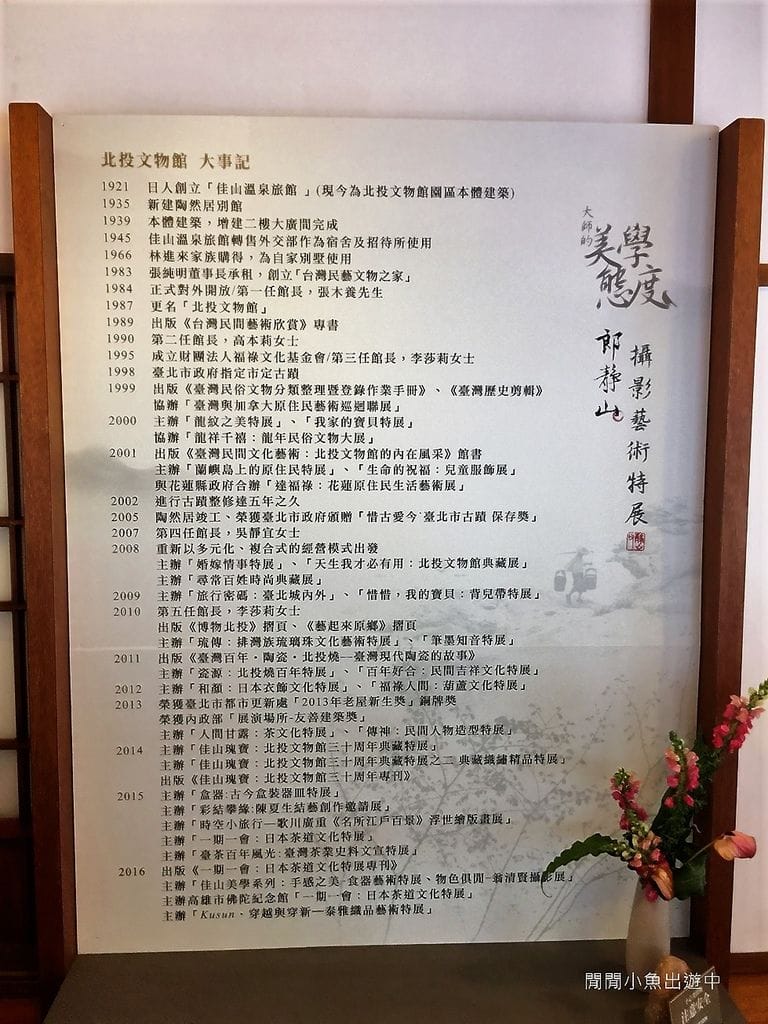 北投文物館 大事記
1921 日人創立「佳山溫泉旅館 」(現今為北投文物館園區本體建築)
1935 新建陶然居別館
1939 本體建築，增建二樓大廣間完成
1945 佳山溫泉旅館轉售外交部作為宿舍及招待所使用
1966 林進來家族購得，為自家別墅使用
1983 張純明董事長承租，創立「台灣民藝文物之家」
1984 正式對外開放/第一任館長，張木養先生
1987 更名「北投文物館」
1989 出版《台灣民間藝術欣賞》專書
1990 第二任館長，高本莉女士
1995 成立財團法人福祿文化基金會/第三任館長，李莎莉女士
1998 臺北市政府指定市定古蹟
1999 出版《臺灣民俗文物分類整理暨登錄作業手冊》、《臺灣歷史剪輯》
協辦「臺灣與加拿大原住民藝術巡迴聯展」
2000 主辦「龍紋之美特展」、「我家的寶貝特展」
協辦「龍祥千禧：龍年民俗文物大展」
2001 出版《臺灣民間文化藝術：北投文物館的內在風采》館書
主辦「蘭嶼島上的原住民特展」、「生命的祝福：兒童服飾展」
與花蓮縣政府合辦「達福祿：花蓮原住民生活藝術展」
2002 進行古蹟整修達五年之久
2005 陶然居竣工、榮獲臺北市政府頒贈「惜古愛今˙臺北市古蹟 保存獎」
2007 第四任館長，吳靜宜女士
2008 重新以多元化、複合式的經營模式出發
主辦「婚嫁情事特展」、「天生我才必有用：北投文物館典藏展」
主辦「尋常百姓時尚典藏展」
2009 主辦「旅行密碼：臺北城內外」、「惜惜，我的寶貝：背兒帶特展」
2010 第五任館長，李莎莉女士
出版《博物北投》摺頁、《藝起來原鄉》摺頁
主辦「琉傳：排灣族琉璃珠文化藝術特展」、「筆墨知音特展」
2011 出版《臺灣百年‧陶瓷‧北投燒—臺灣現代陶瓷的故事》
主辦「瓷源：北投燒百年特展」、「百年好合：民間吉祥文化特展」
2012 主辦「和顏：日本衣飾文化特展」、「福祿人間：葫蘆文化特展」
2013 榮獲臺北市都市更新處「2013年老屋新生獎」銅牌獎
榮獲內政部「展演場所-友善建築獎」
主辦「人間甘露：茶文化特展」、「傳神：民間人物造型特展」
2014 主辦「佳山瑰寶：北投文物館三十周年典藏特展」
主辦「佳山瑰寶：北投文物館三十周年典藏特展之二 典藏織繡精品特展」
出版《佳山瑰寶：北投文物館三十周年專刊》
2015 主辦「盒器:古今盒裝器皿特展」
主辦「彩結攀緣:陳夏生結藝創作邀請展」
主辦「時空小旅行—歌川廣重《名所江戶百景》浮世繪版畫展」
主辦「一期一會：日本茶道文化特展」
主辦「臺茶百年風光:臺灣茶業史料文宣特展」
2016 出版《一期一會：日本茶道文化特展專刊》
主辦「佳山美學系列：手感之美-食器藝術特展、物色俱閒-翁清賢攝影展」
主辦高雄市佛陀紀念館「一期一會：日本茶道文化特展」
主辦「Kusun、穿越與穿新—泰雅織品藝術特展」
大師的
美學
態度
郎靜山
攝影藝術特展
閒閒小魚出遊中
注意安全